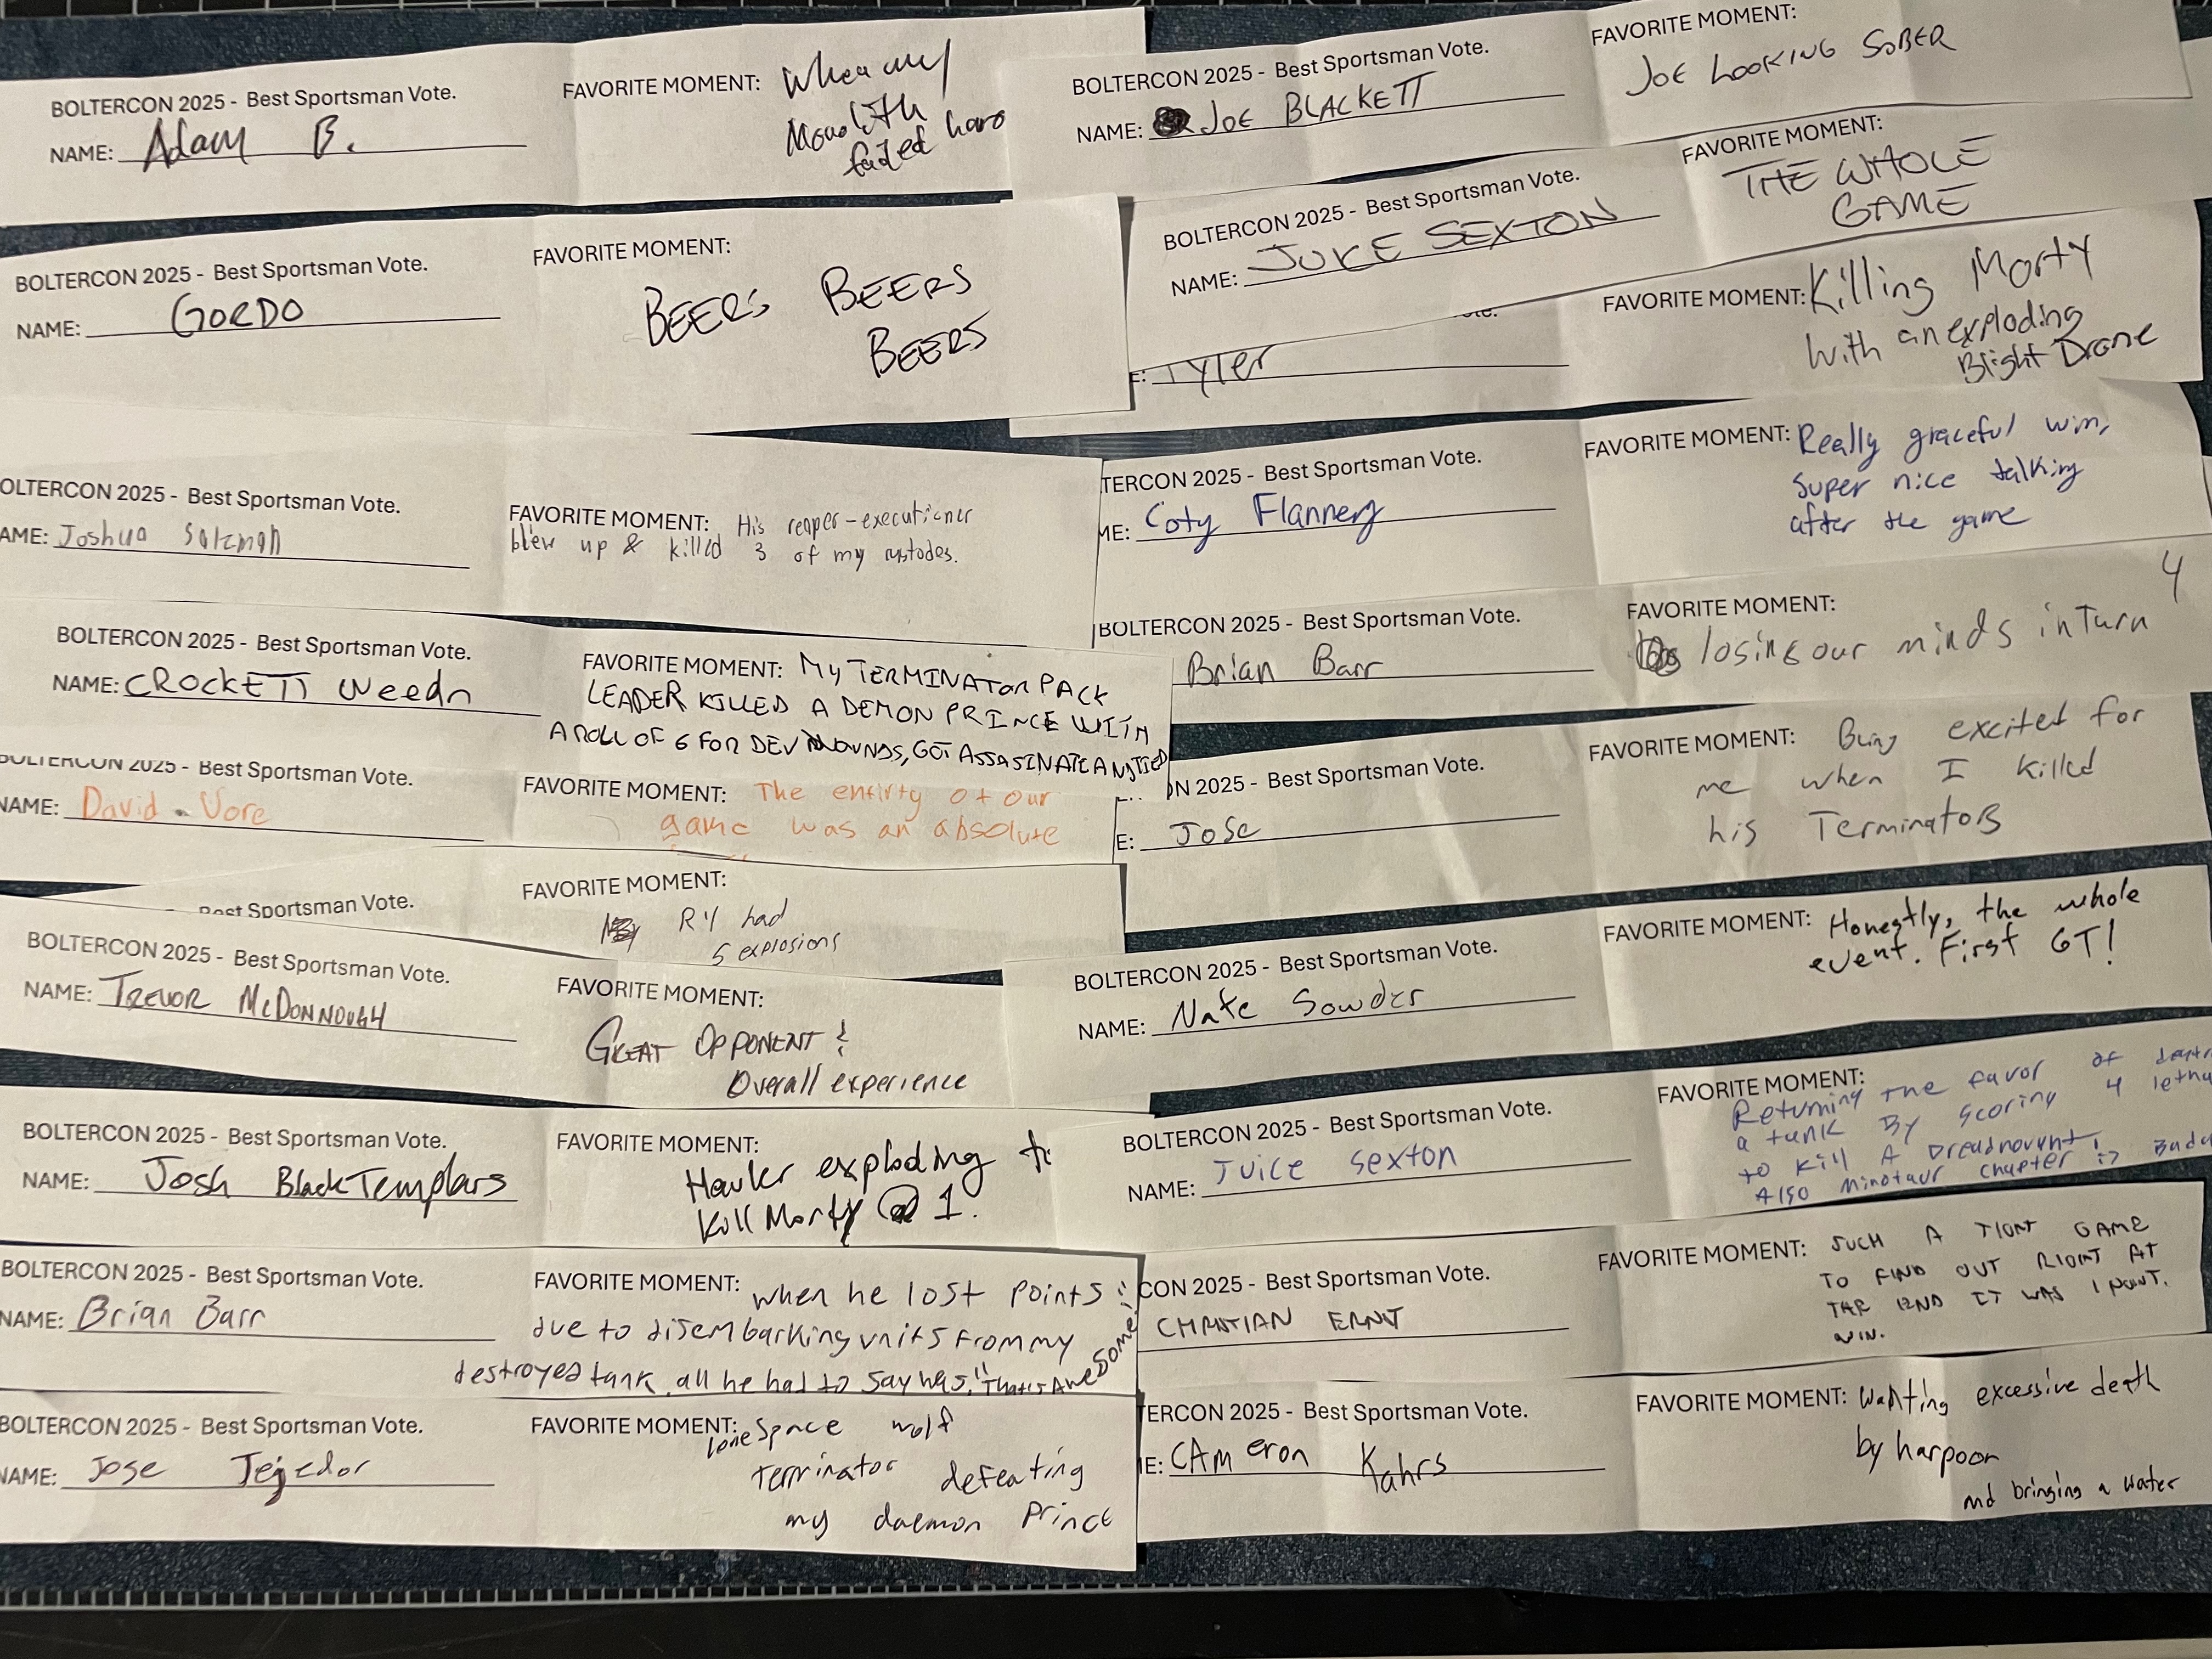 BOLTERCON 2025 - Best Sportsman Vote.
NAME: Adam B.
FAVORITE MOMENT: When my
Monolith
failed hard
BOLTERCON 2025 - Best Sportsman Vote.
NAME: GORDO
FAVORITE MOMENT:
BEERS BEERS
BEERS
OLTERCON 2025 - Best Sportsman Vote.
AME: Joshua Salzman
FAVORITE MOMENT: His reaper-executioner
blew up & killed 3 of my custodes.
BOLTERCON 2025 - Best Sportsman Vote.
NAME: CROCKETT Weedn
FAVORITE MOMENT: MY TERMINATOR PACK
LEADER KILLED A DEMON PRINCE WITH
A ROLL OF 6 FOR DEV WOUNDS, GOT ASSASINATE AN TIED
BOLTERCON 2025 - Best Sportsman Vote.
NAME: David Vore
FAVORITE MOMENT: The entirty of our
game was an absolute
Best Sportsman Vote.
FAVORITE MOMENT:
R4 had
5 explosions
BOLTERCON 2025 - Best Sportsman Vote.
NAME: TREVOR McDONNOUGH
FAVORITE MOMENT:
GREAT OPPONENT &
Overall experience
BOLTERCON 2025 - Best Sportsman Vote.
NAME: Josh BlackTemplars
FAVORITE MOMENT:
Hauler exploding to
Kill Morty @ 1.
BOLTERCON 2025 - Best Sportsman Vote.
NAME: Brian Barr
FAVORITE MOMENT: when he lost points
due to disembarking units from my
destroyed tank, all he had to say was, "That's Awesome!"
BOLTERCON 2025 - Best Sportsman Vote.
NAME: Jose Tejedor
FAVORITE MOMENT: lone Space wolf
terminator defeating
my daemon Prince
BOLTERCON 2025 - Best Sportsman Vote.
NAME: JOE BLACKETT
FAVORITE MOMENT:
JOE LOOKING SOBER
BOLTERCON 2025 - Best Sportsman Vote.
NAME: JUKE SEXTON
FAVORITE MOMENT:
THE WHOLE
GAME
ote.
E: Tyler
FAVORITE MOMENT: Killing Morty
with an exploding
Blight Drone
TERCON 2025 - Best Sportsman Vote.
ME: Coty Flannery
FAVORITE MOMENT: Really graceful win,
super nice talking
after the game
BOLTERCON 2025 - Best Sportsman Vote.
Brian Barr
FAVORITE MOMENT:
losing our minds in Turn 4
ON 2025 - Best Sportsman Vote.
E: Jose
FAVORITE MOMENT: Being excited for
me when I killed
his Terminators
BOLTERCON 2025 - Best Sportsman Vote.
NAME: Nate Sowder
FAVORITE MOMENT: Honestly, the whole
event. First GT!
BOLTERCON 2025 - Best Sportsman Vote.
NAME: Juice Sexton
FAVORITE MOMENT:
Returning the favor of
a tank By scoring 4
to kill A Dreadnought!
Also Minotaur chapter :)
CON 2025 - Best Sportsman Vote.
CHRISTIAN ERNST
FAVORITE MOMENT: SUCH A TIGHT GAME
TO FIND OUT RIGHT AT
THE END IT WAS 1 POINT.
WIN.
TERCON 2025 - Best Sportsman Vote.
E: CAMeron Kahrs
FAVORITE MOMENT: Wanting excessive death
by harpoon
and bringing a water